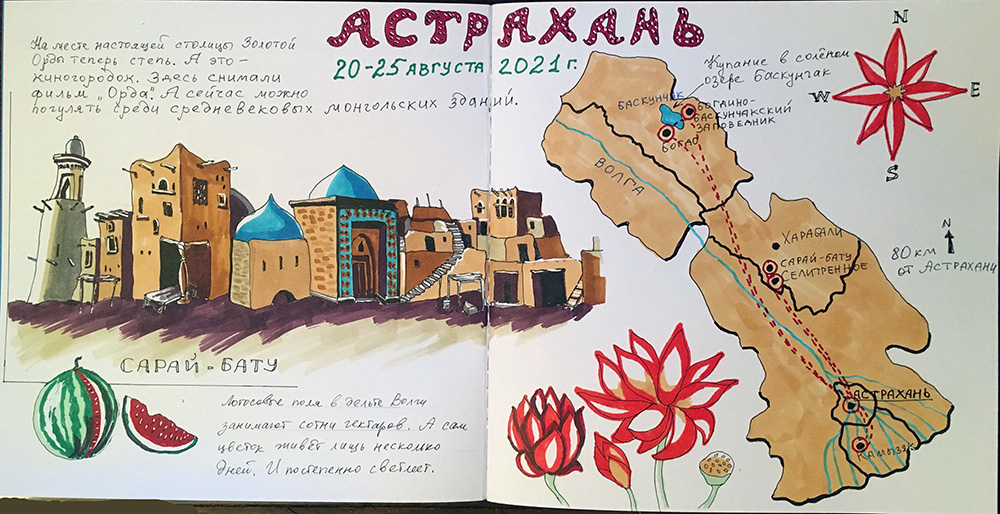 АСТРАХАНЬ
20-25 АВГУСТА 2021 г.
На месте настоящей столицы Золотой
Орды теперь степь. А это -
киногородок. Здесь снимали
фильм „Орда". А сейчас можно
погулять среди средневековых монгольских зданий.
САРАЙ-БАТУ
Лотосовые поля в дельте Волги
занимают сотни гектаров. А сам
цветок живёт лишь несколько
дней. И постепенно светлеет.
Купание в солёном
озере Баскунчак
БАСКУНЧАК
БОГДИНО-
БАСКУНЧАКСКИЙ
ЗАПОВЕДНИК
БОГДО
ВОЛГА
ХАРАБАЛИ
САРАЙ-БАТУ
СЕЛИТРЕННОЕ
АСТРАХАНЬ
КАМЫЗЯК
N
W
E
S
N
80 км
от АСТРАХАНИ